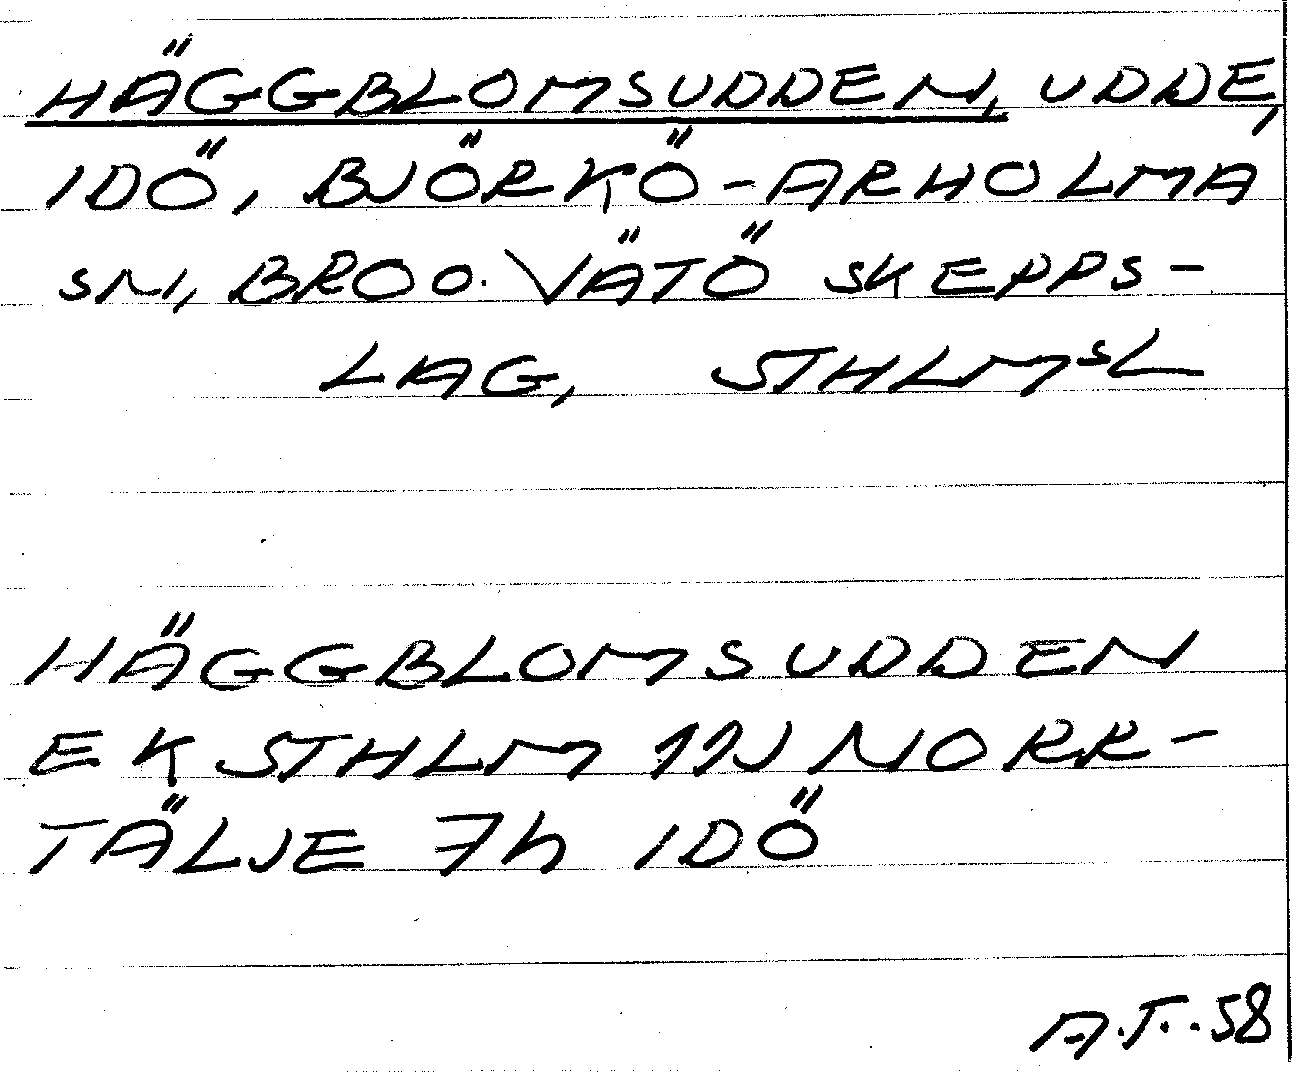 HÄGGBLOMSUDDEN, UDDE,
IDÖ, BJÖRKÖ-ARHOLMA
SN, BRO O. VÄTÖ SKEPPS-
LAG, STHLMSL
HÄGGBLOMSUDDEN
EK STHLM 11J NORR-
TÄLJE 7h IDÖ
A.T..58